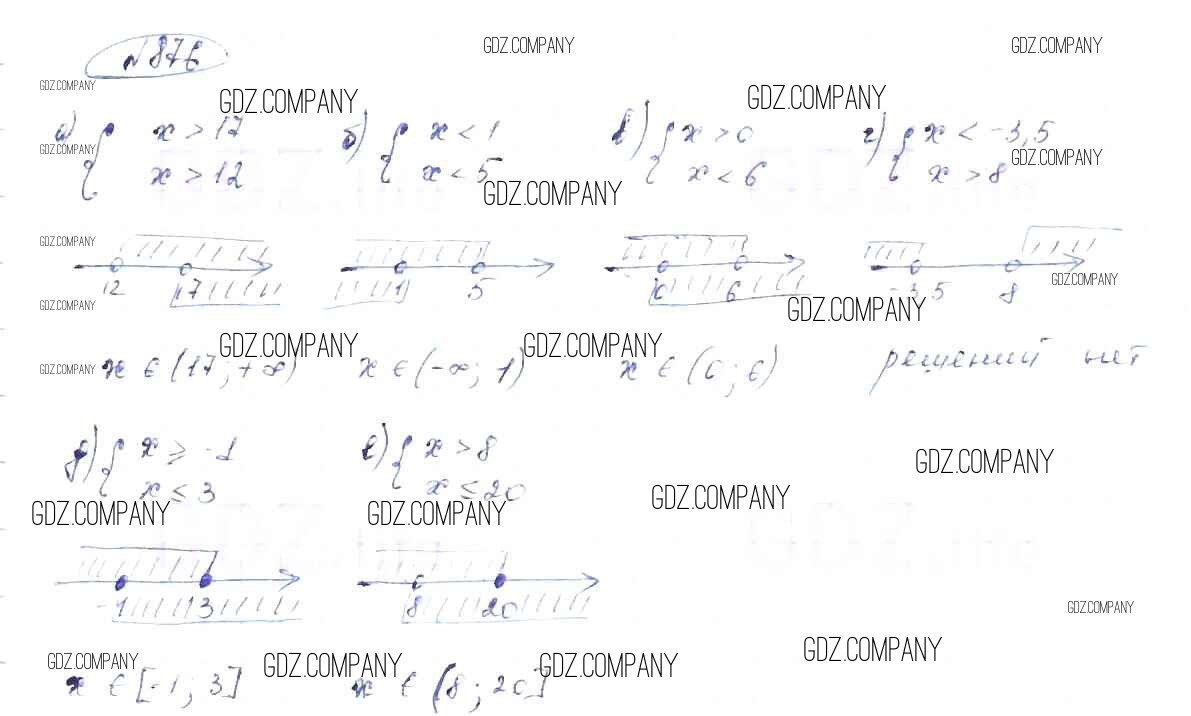 №876
GDZ.COMPANY GDZ.COMPANY
GDZ.COMPANY GDZ.COMPANY GDZ.COMPANY
а) { x > 17 б) { x < 1 в) { x > 0 г) { x < -3,5
GDZ.COMPANY GDZ.COMPANY
x > 12 x < 5 x < 6 x > 8
GDZ.COMPANY
GDZ.COMPANY
12 17 1 5 0 6 -3,5 8
GDZ.COMPANY
GDZ.COMPANY GDZ.COMPANY
GDZ.COMPANY GDZ.COMPANY
GDZ.COMPANY x ∈ (17; +∞) x ∈ (-∞; 1) x ∈ (0; 6) решений нет
д) { x ≥ -1 е) { x > 8
GDZ.COMPANY
x ≤ 3 x ≤ 20
GDZ.COMPANY
GDZ.COMPANY GDZ.COMPANY
GDZ.life GDZ.life
-1 3 8 20
GDZ.COMPANY
GDZ.COMPANY
GDZ.COMPANY GDZ.COMPANY GDZ.COMPANY
x ∈ [-1; 3] x ∈ (8; 20]